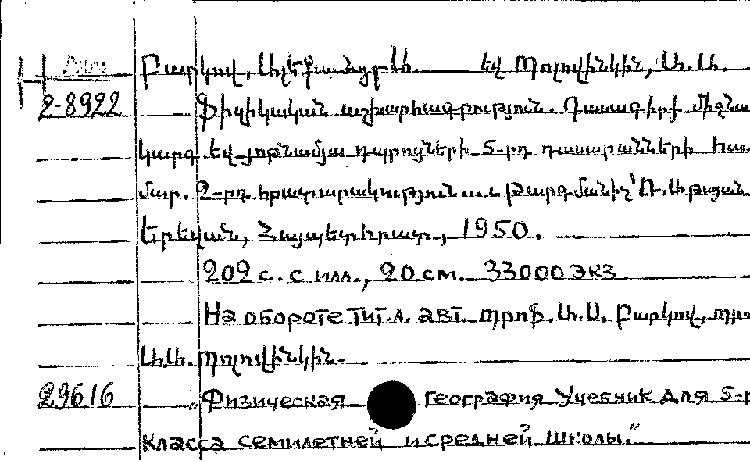 Բարկով, Ալեքսանդր Ս. եվ Պոլովինկին, Ա. Ա.
2-8922 Ֆիզիկական աշխարհագրություն. Դասագիրք միջնա
կարգ եվ յոթնամյա դպրոցների 5-րդ դասարանների հա
մար. 2-րդ հրատարակություն Թարգմանիչ՝
Երեվան, Հայպետհրատ, 1950.
202 с. с илл., 20 см. 33000 экз
На обороте тит. л. авт. պրոֆ. Ա.Ս. Բարկով,
Ա.Ա. Պոլովինկին.
29616 „Физическая География Учебник для 5-г
класса семилетней и средней школы."